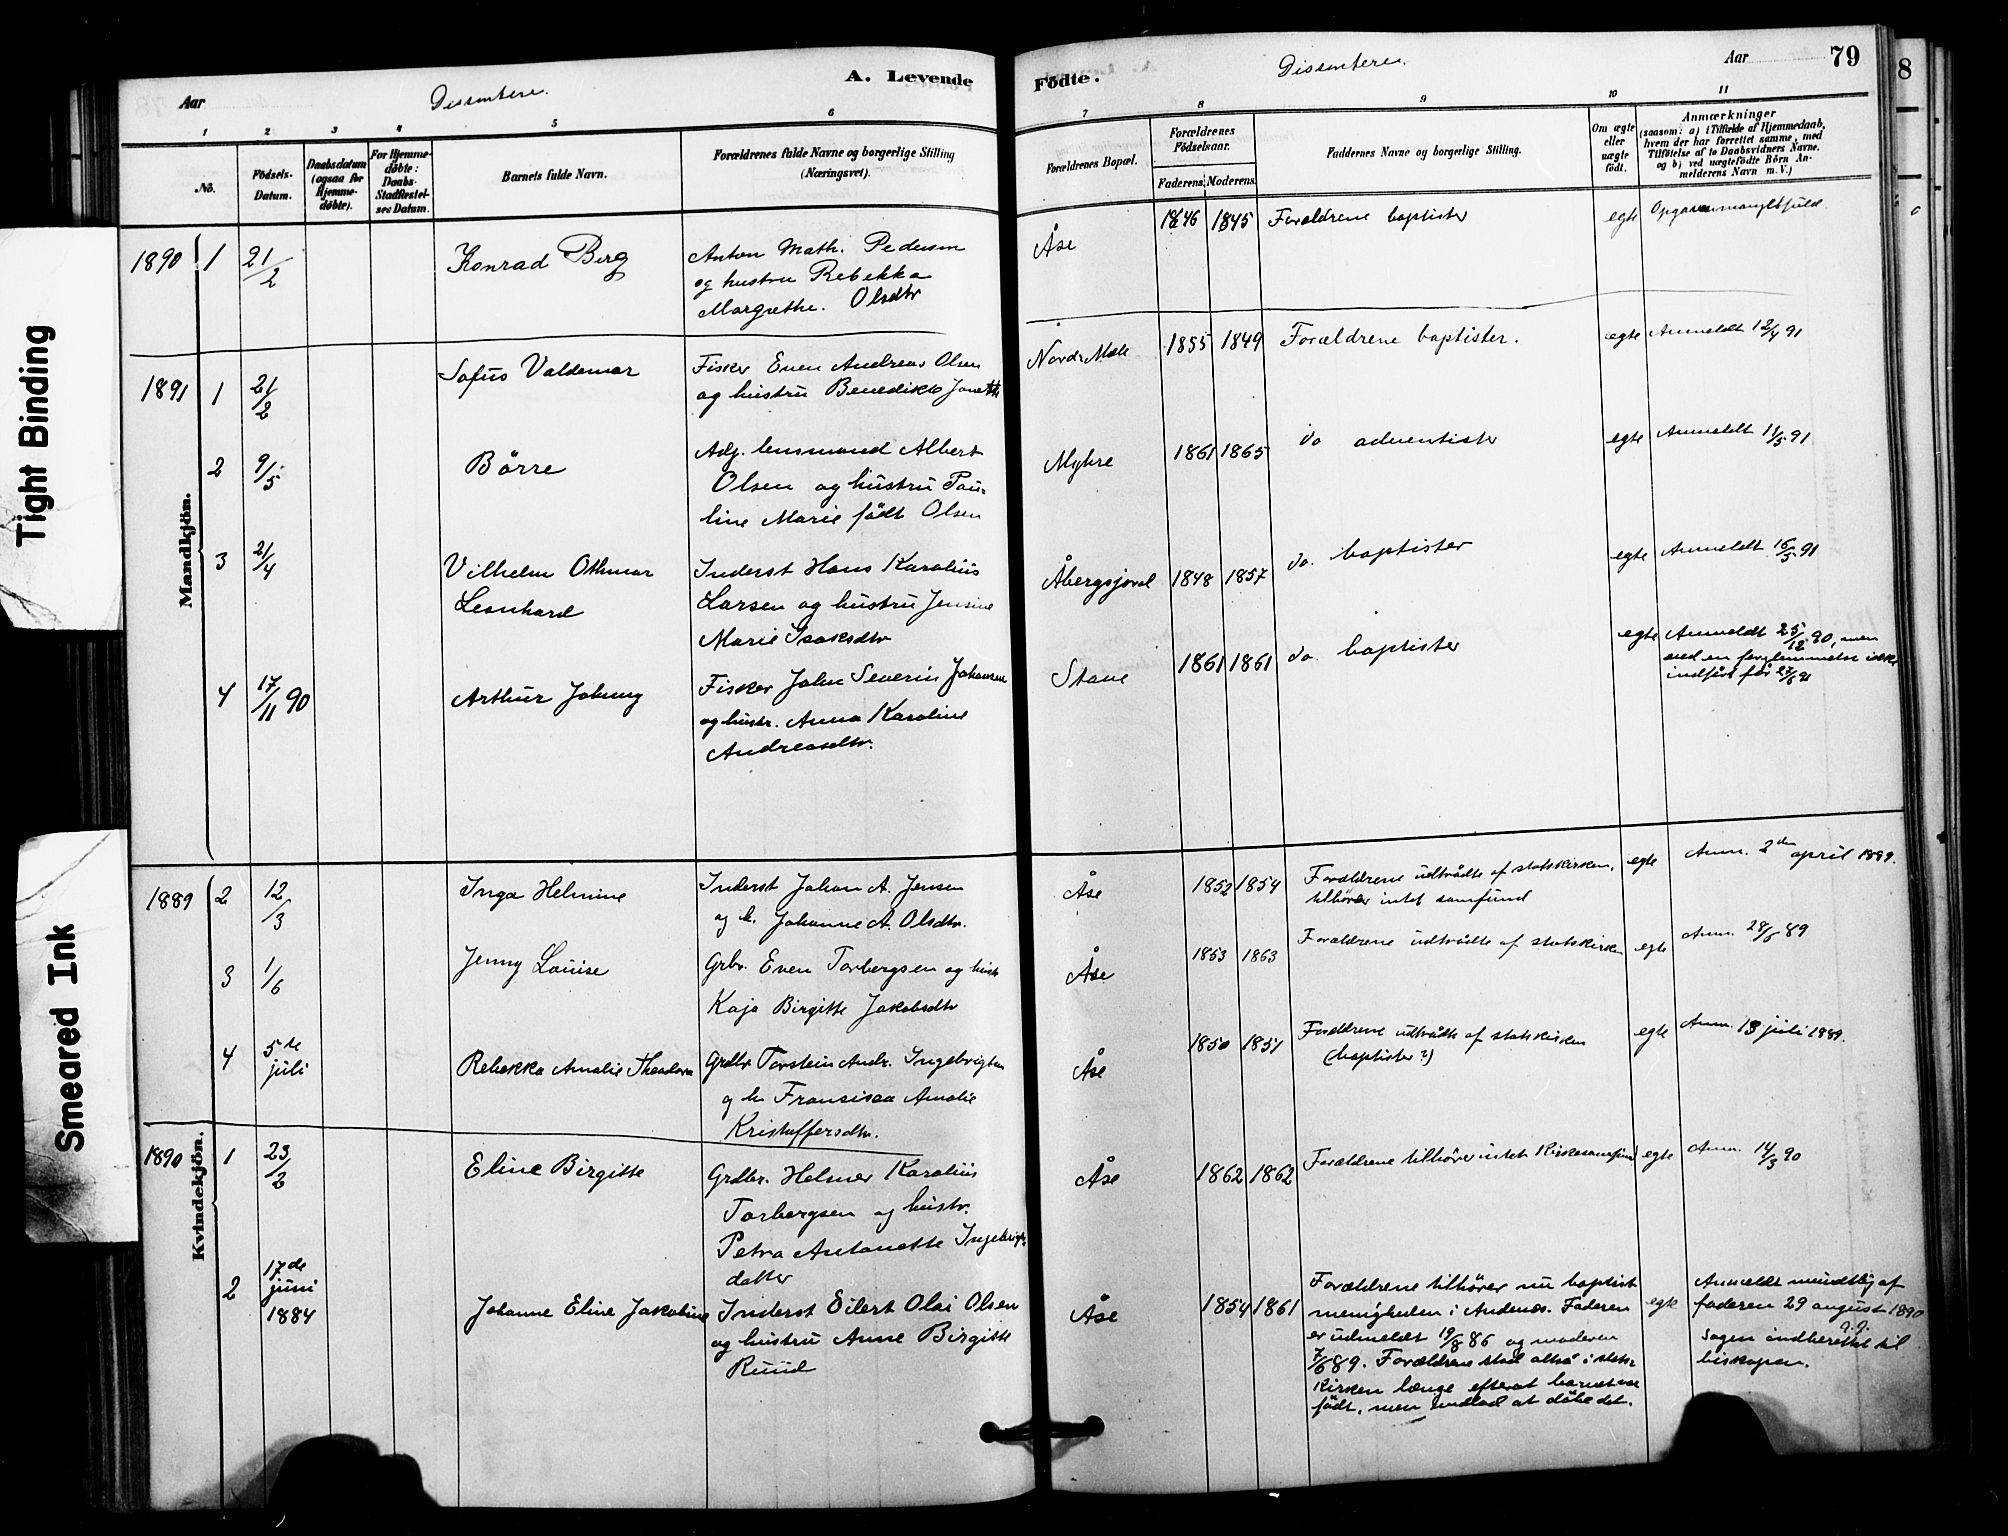 Tight Binding
Smeared Ink
Aar
Dissentere.
A. Levende
Födte.
Dissentere.
Aar
79
8
1 2 3 4 5 6 7 8 9 10 11
No.
Födsels-
Datum.
Daabsdatum
(ogsaa for
Hjemme-
döbte).
For Hjemme-
döbte:
Daabs-
Stadfæstel-
ses Datum.
Barnets fulde Navn.
Forældrenes fulde Navne og borgerlige Stilling
(Næringsvei).
Forældrenes Bopæl.
Forældrenes
Födselsaar.
Faderens. Moderens.
Faddernes Navne og borgerlige Stilling.
Om ægte
eller
uægte
födt.
Anmærkninger
(saasom: a) i Tilfælde af Hjemmedaab,
hvem der har forrettet samme, med
Tilföielse af to Daabsvidners Navne.
og b) ved uægtefödte Börn An-
melderens Navn m. V.)
Mandkjön.
1890 1 21/2 Konrad Berg
Anton Math. Pedersen
og hustru Rebekka
Margrethe. Olsdtr
Åse 1846 1845 Forældrene baptister egte
1891 1 21/2 Sofus Valdemar
Fisker Even Andreas Olsen
og hustru Benedikte Janette
Nordr. Mele 1855 1849 Forældrene baptister. egte Anmeldt 12/4 91
2 9/5 Börre
Adj. lensmand Albert
Olsen og hustru Pau-
line Marie född Olsen
Myhre 1861 1865 do adventister egte Anmeldt 11/5 91
3 21/4 Vilhelm Othmar
Leonhard
Inderst Hans Karolius
Larsen og hustru Jensine
Marie Isaksdtr
Åbergsjord 1848 1857 do. baptister egte Anmeldt 16/5 91
4 17/11 90 Arthur Johnny
Fisker John Severin Johansen
og hustr. Anna Karoline
Andreasdtr.
Stave 1861 1861 do. baptister egte Anmeldt 25/12 90, men
ved en forglemmelse ikke
indført før 27/6 91
Kvindekjön.
1889 2 12/3 Inga Helmine
Inderst Johan A. Jensen
og h. Johanne A. Olsdtr.
Åse 1852 1854 Forældrene udtrådte af statskirken,
tilhører intet samfund
egte Anm. 2den april 1889.
3 1/6 Jenny Louise
Grbr. Even Torbergsen og hustr
Kaja Birgitte Jakobsdtr
Åse 1853 1863 Forældrene udtrådte af statskirken egte Anm. 28/6 89
4 5te juli Rebekka Amalie Theodora
Grdbr. Torstein Andr. Ingebrigtsen
og h. Fransisca Amalie
Kristoffersdtr.
Åse 1850 1851 Forældrene udtrådte af statskirken
(baptister?)
egte Anm. 13 juli 1889.
1890 1 23/2 Eline Birgitte
Grdbr. Helmer Karolius
Torbergsen og hustr.
Petra Antonette Ingebrigts
datter
Åse 1862 1862 Forældrene tilhører intet Kirkesamfund egte Anm. 14/3 90
2 17de
juni
1884
Johanne Eline Jakobine
Inderst Eilert Olai Olsen
og hustru Anne Birgitte
Ruud
Åse 1854 1861 Forældrene tilhører nu baptist
menigheden i Andenes. Faderen
er udmeldt 19/8 86 og moderen
7/6 89. Forældrene stod altså i stats-
kirken længe efterat barnet var
født, men undlod at døbe det.
egte Anmeldt mundtlig af
faderen 29 august 1890
Sagen indberettet til
biskopen.